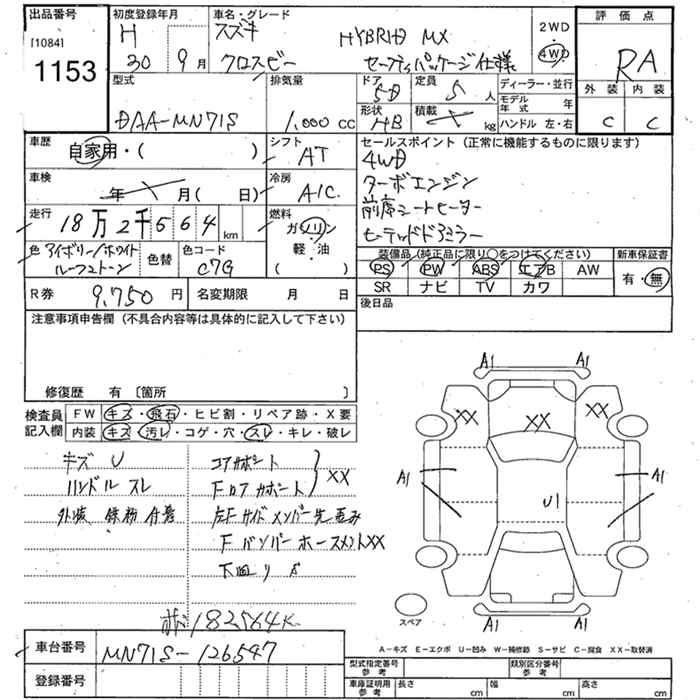 出品番号
[1084]
1153
初度登録年月
H
30 9月
車名・グレード
スズキ HYBRID MX
クロスビー セーフティパッケージ仕様
2WD
4WD
評価点
RA
外装 内装
C C
型式
DAA-MN71S
排気量
1,000 cc
ドア 5D
定員 5人
形状 HB
積載 kg
ディーラー・並行
モデル年式 年
ハンドル 左・右
車歴
自家用・( )
シフト
AT
車検
年 月( 日)
冷房
A/C
走行
18万2千564 km
燃料
ガソリン
軽・油
( )
色 アイボリー/ホワイト
ルーフ2トーン
色替
色コード
C7G
R券 9,750円
名変期限 月 日
セールスポイント (正常に機能するものに限ります)
4WD
ターボエンジン
前席シートヒーター
ヒーテッドドアミラー
装備品 (純正品に限り○をつけてください)
PS PW ABS エアB AW
SR ナビ TV カワ
新車保証書
有・無
後日品
注意事項申告欄 (不具合内容等は具体的に記入して下さい)
修復歴 有 〔箇所 〕
検査員記入欄
FW キズ・飛石・ヒビ割・リペア跡・X要
内装 キズ・汚レ・コゲ・穴・スレ・キレ・破レ
キズ U
ハンドル スレ
外装 鉄粉 付着
コアサポート
Fロアサポート
XX
左Fサイドメンバー先歪み
FバンパーホースメントXX
下回り S
182564K
A1 A1
XX XX XX
A1 A1
U1
A1 A1
スペア
A-キズ E-エクボ U-凹み W-補修跡 S-サビ C-腐食 XX-取替済
車台番号
MN71S-126547
登録番号
型式指定番号 参考
類別区分番号 参考
車庫証明用 参考
長さ cm
幅 cm
高さ cm